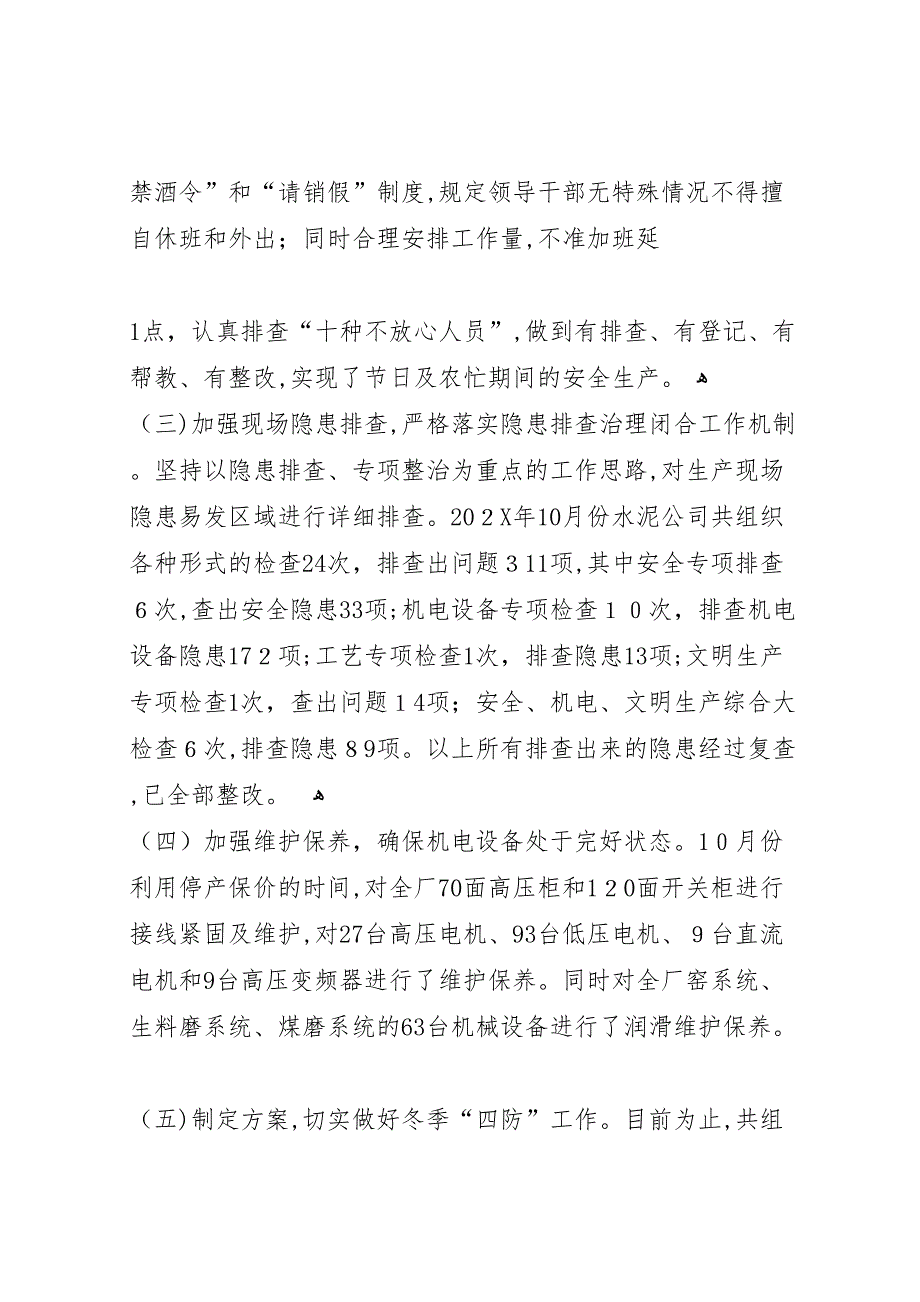 禁酒令”和“请销假”制度,规定领导干部无特殊情况不得擅
自休班和外出；同时合理安排工作量,不准加班延
1点，认真排查“十种不放心人员”,做到有排查、有登记、有
帮教、有整改,实现了节日及农忙期间的安全生产。 ﻫ
（三)加强现场隐患排查,严格落实隐患排查治理闭合工作机制
。坚持以隐患排查、专项整治为重点的工作思路,对生产现场
隐患易发区域进行详细排查。20２X年10月份水泥公司共组织
各种形式的检查24次，排查出问题３11项,其中安全专项排查
６次,查出安全隐患33项;机电设备专项检查１０次，排查机电
设备隐患17２项;工艺专项检查1次，排查隐患13项;文明生产
专项检查1次，查出问题１4项；安全、机电、文明生产综合大
检查６次,排查隐患８9项。以上所有排查出来的隐患经过复查
,已全部整改。 ﻫ
（四）加强维护保养，确保机电设备处于完好状态。1０月份
利用停产保价的时间,对全厂70面高压柜和1２0面开关柜进行
接线紧固及维护,对27台高压电机、93台低压电机、９台直流
电机和9台高压变频器进行了维护保养。同时对全厂窑系统、
生料磨系统、煤磨系统的63台机械设备进行了润滑维护保养。
（五)制定方案,切实做好冬季“四防”工作。目前为止,共组